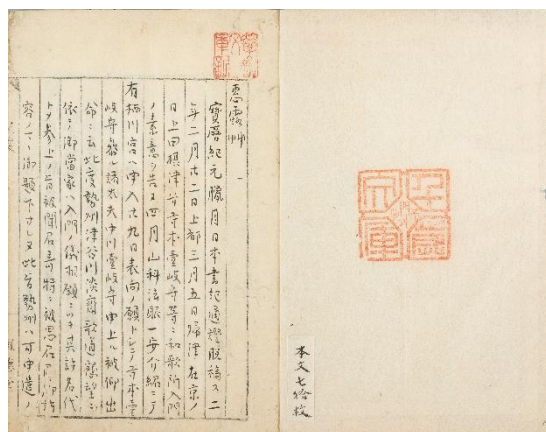 恵露艸 一
寶暦紀元臘月日本書紀通證脱稿ス二
年二月廿二日上都三月五日帰津在京ノ
日上田摂津守寺本壹岐守等ニ和歌所入門
ノ素意ヲ告 四月山科法眼一安介紹ニテ
有栖川宮ヘ申入十九日表向ノ願トシテ寺本壹
岐守 諸大夫中川壹岐守申上ル被仰出
命ニ云此度勢州津谷川淡齋歌道懇望ニ
依テ御當家ヘ入門ノ儀相願ニツキ其許名代
トメ参上ノ旨被聞召 特ニ被思召
容ノ 御題下サレ又此旨勢州ヘ可申遣ノ
本文七拾枚